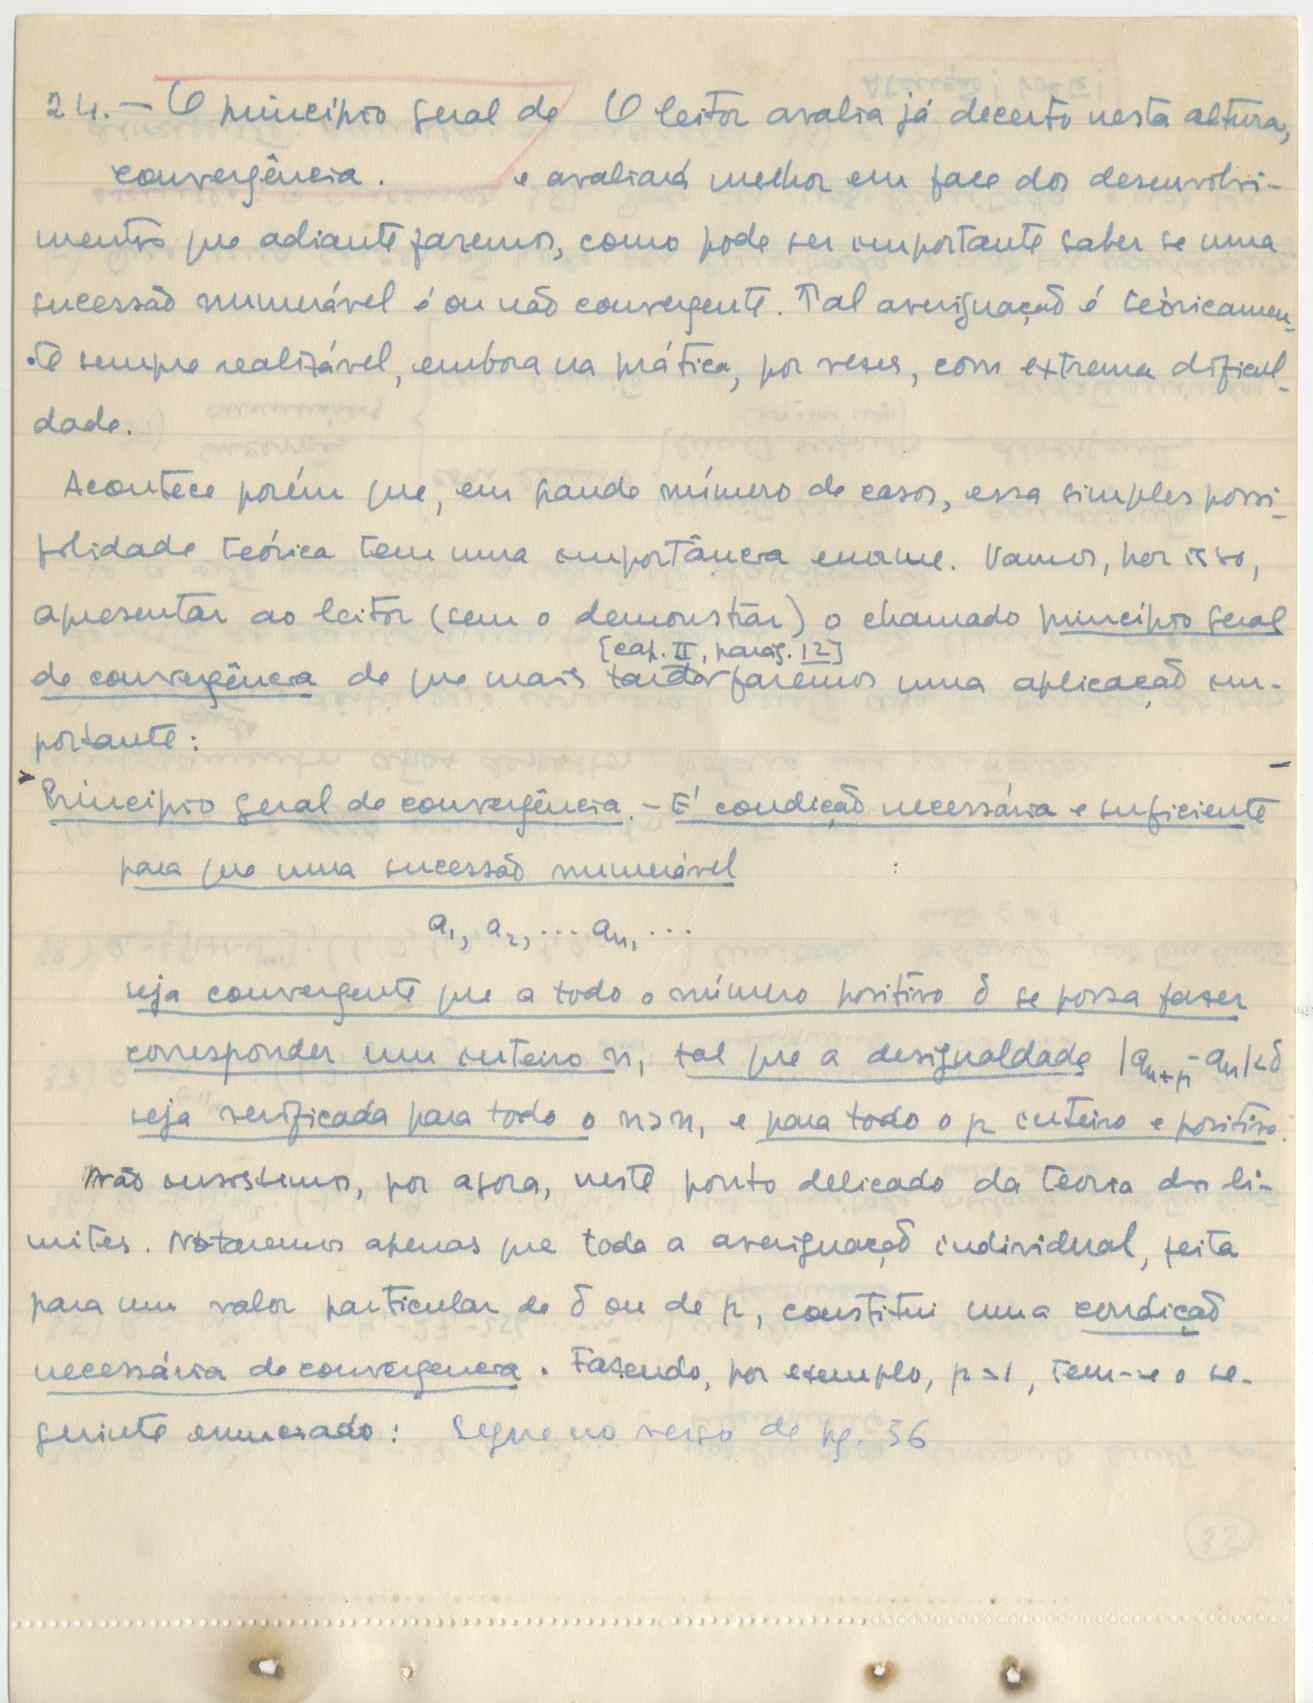 24. — O princípio geral de convergência.
O leitor avalia já decerto nesta altura,
e avaliará melhor em face dos desenvolvi-
mentos que adiante faremos, como pode ser importante saber se uma
sucessão numerável é ou não convergente. Tal averiguação é teòricamen-
te sempre realizável, embora na prática, por vezes, com extrema dificul-
dade.
Acontece porém que, em grande número de casos, essa simples possi-
bilidade teórica tem uma importância enorme. Vamos, por isso,
apresentar ao leitor (sem o demonstrar) o chamado princípio geral
[cap. II, parág. 12]
de convergência de que mais tarde faremos uma aplicação im-
portante:
Princípio geral de convergência. — É condição necessária e suficiente
para que uma sucessão numerável :
a₁, a₂, ... aₙ, ...
seja convergente que a todo o número positivo δ se possa fazer
corresponder um inteiro n₁ tal que a desigualdade |aₙ₊ₚ - aₙ|<δ
seja verificada para todo o n>n₁ e para todo o p inteiro e positivo.
Não insistimos, por agora, neste ponto delicado da teoria dos li-
mites. Notaremos apenas que toda a averiguação individual, feita
para um valor particular de δ ou de p, constitui uma condição
necessária de convergencia. Fazendo, por exemplo, p=1, tem-se o se-
guinte enunciado: Segue no verso de pg. 36